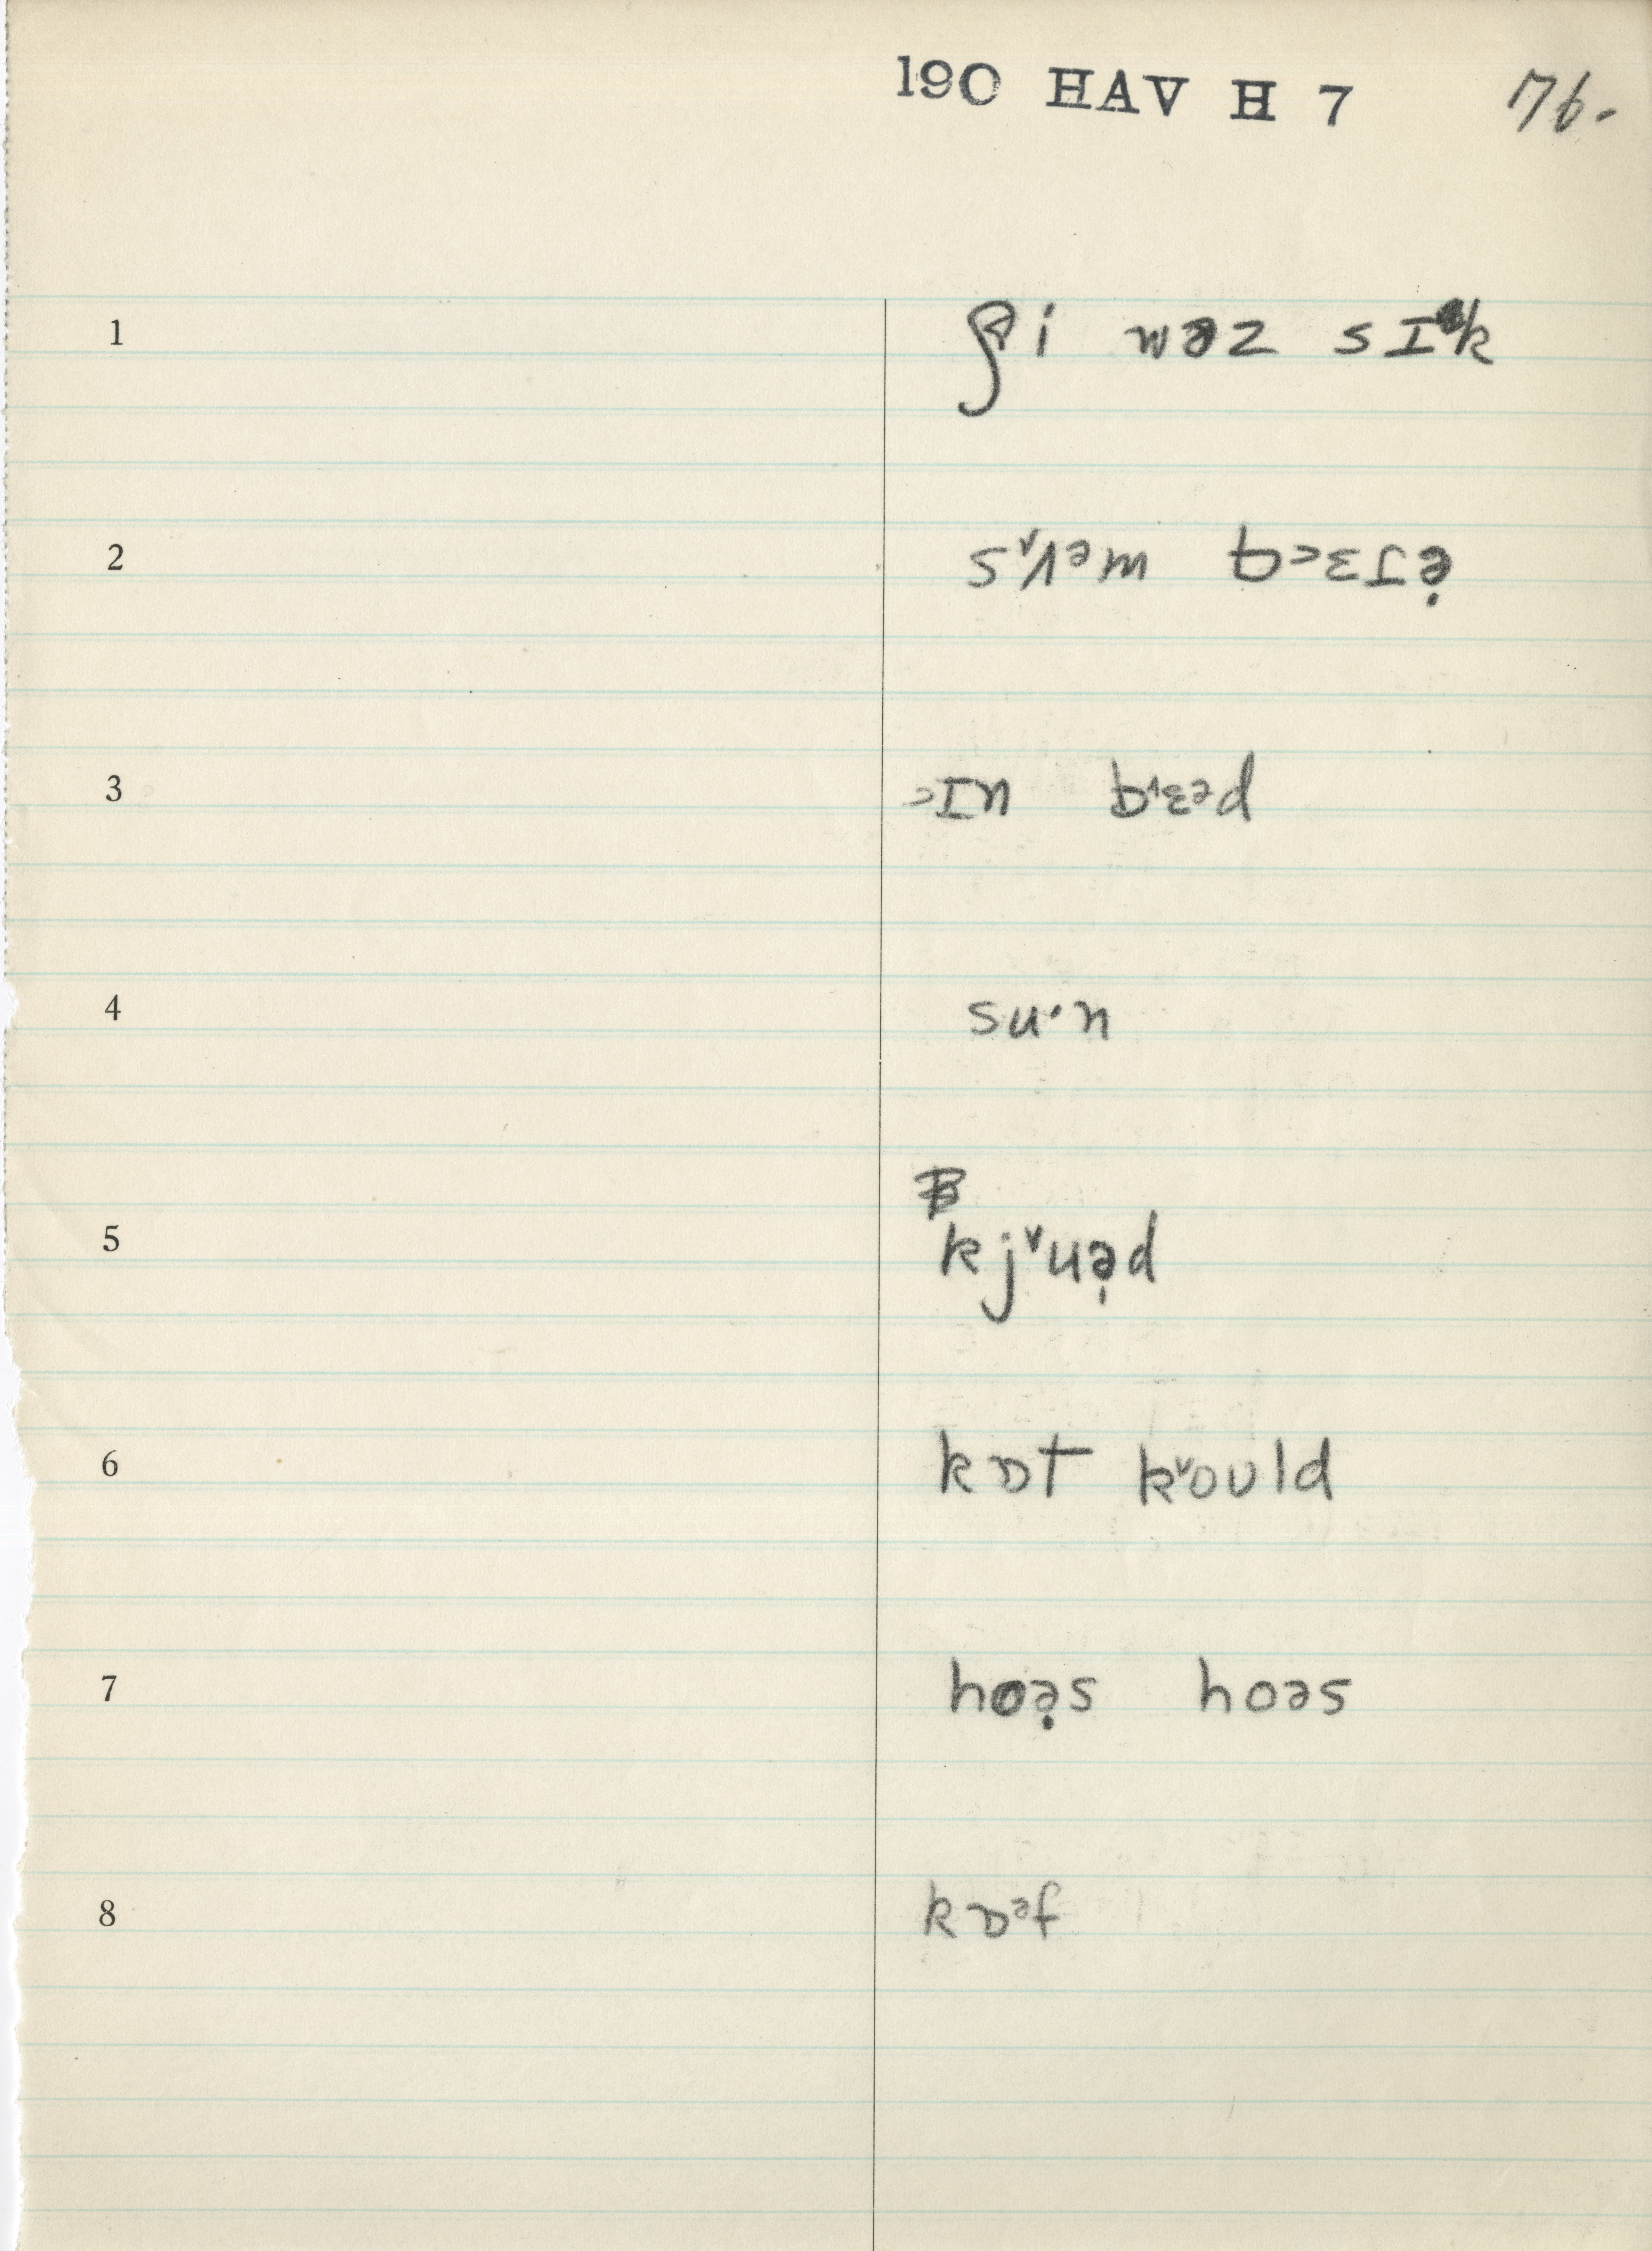 190 HAV H 7 76.
1 ʃi wəz sɪk
2 sʌəm bɛɾə̣
3 ɪn bɛəd
4 su·n
5 kjuə̣d
6 kɒt kould
7 hoə̣s hoəs
8 kɒəf